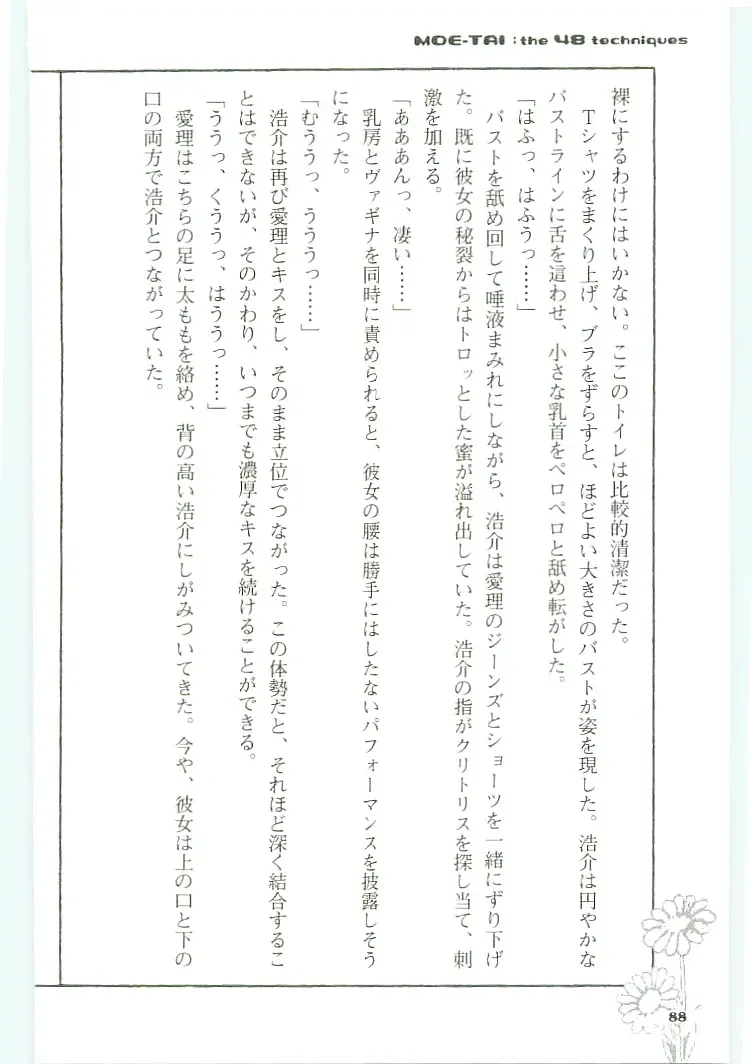 MOE-TAI : the 48 techniques
裸にするわけにはいかない。ここのトイレは比較的清潔だった。
Tシャツをまくり上げ、ブラをずらすと、ほどよい大きさのバストが姿を現した。浩介は円やかな
バストラインに舌を這わせ、小さな乳首をペロペロと舐め転がした。
「はふっ、はふうっ……」
バストを舐め回して唾液まみれにしながら、浩介は愛理のジーンズとショーツを一緒にずり下げ
た。既に彼女の秘裂からはトロッとした蜜が溢れ出していた。浩介の指がクリトリスを探し当て、刺
激を加える。
「あああんっ、凄い……」
乳房とヴァギナを同時に責められると、彼女の腰は勝手にはしたないパフォーマンスを披露しそう
になった。
「むううっ、うううっ……」
浩介は再び愛理とキスをし、そのまま立位でつながった。この体勢だと、それほど深く結合するこ
とはできないが、そのかわり、いつまでも濃厚なキスを続けることができる。
「ううっ、くううっ、はううっ……」
愛理はこちらの足に太ももを絡め、背の高い浩介にしがみついてきた。今や、彼女は上の口と下の
口の両方で浩介とつながっていた。
88